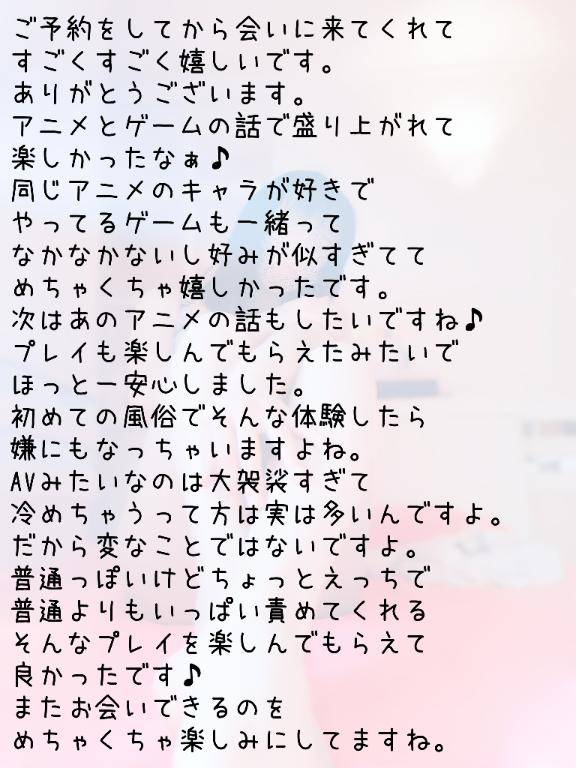 ご予約をしてから会いに来てくれて
すごくすごく嬉しいです。
ありがとうございます。
アニメとゲームの話で盛り上がれて
楽しかったなぁ♪
同じアニメのキャラが好きで
やってるゲームも一緒って
なかなかないし好みが似すぎてて
めちゃくちゃ嬉しかったです。
次はあのアニメの話もしたいですね♪
プレイも楽しんでもらえたみたいで
ほっと一安心しました。
初めての風俗でそんな体験したら
嫌にもなっちゃいますよね。
AVみたいなのは大袈裟すぎて
冷めちゃうって方は実は多いんですよ。
だから変なことではないですよ。
普通っぽいけどちょっとえっちで
普通よりもいっぱい責めてくれる
そんなプレイを楽しんでもらえて
良かったです♪
またお会いできるのを
めちゃくちゃ楽しみにしてますね。